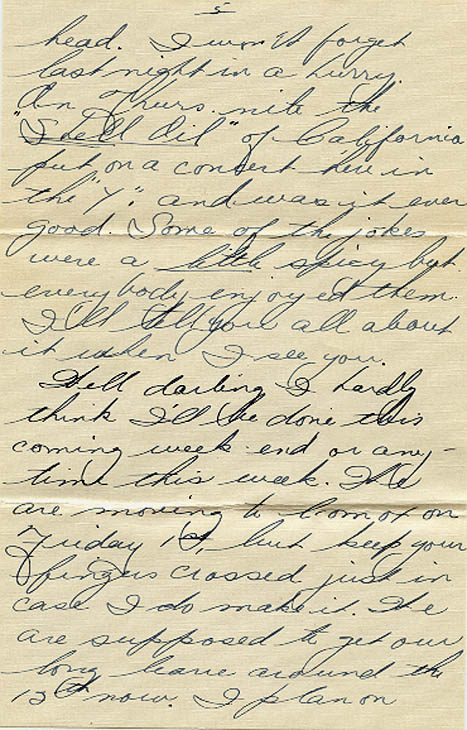 5
head. I won't forget
last night in a hurry.
On Thurs. nite the
"Shell Oil" of California
put on a concert here in
the "Y". and was it ever
good. Some of the jokes
were a little spicy but
everybody enjoyed them.
I'll tell you all about
it when I see you.
Well darling I hardly
think I'll be done this
coming week end or any-
time this week. We
are moving to on
Friday 1st, but keep your
fingers crossed just in
case I do make it. We
are supposed to get our
long leave around the
15th now. I plan on